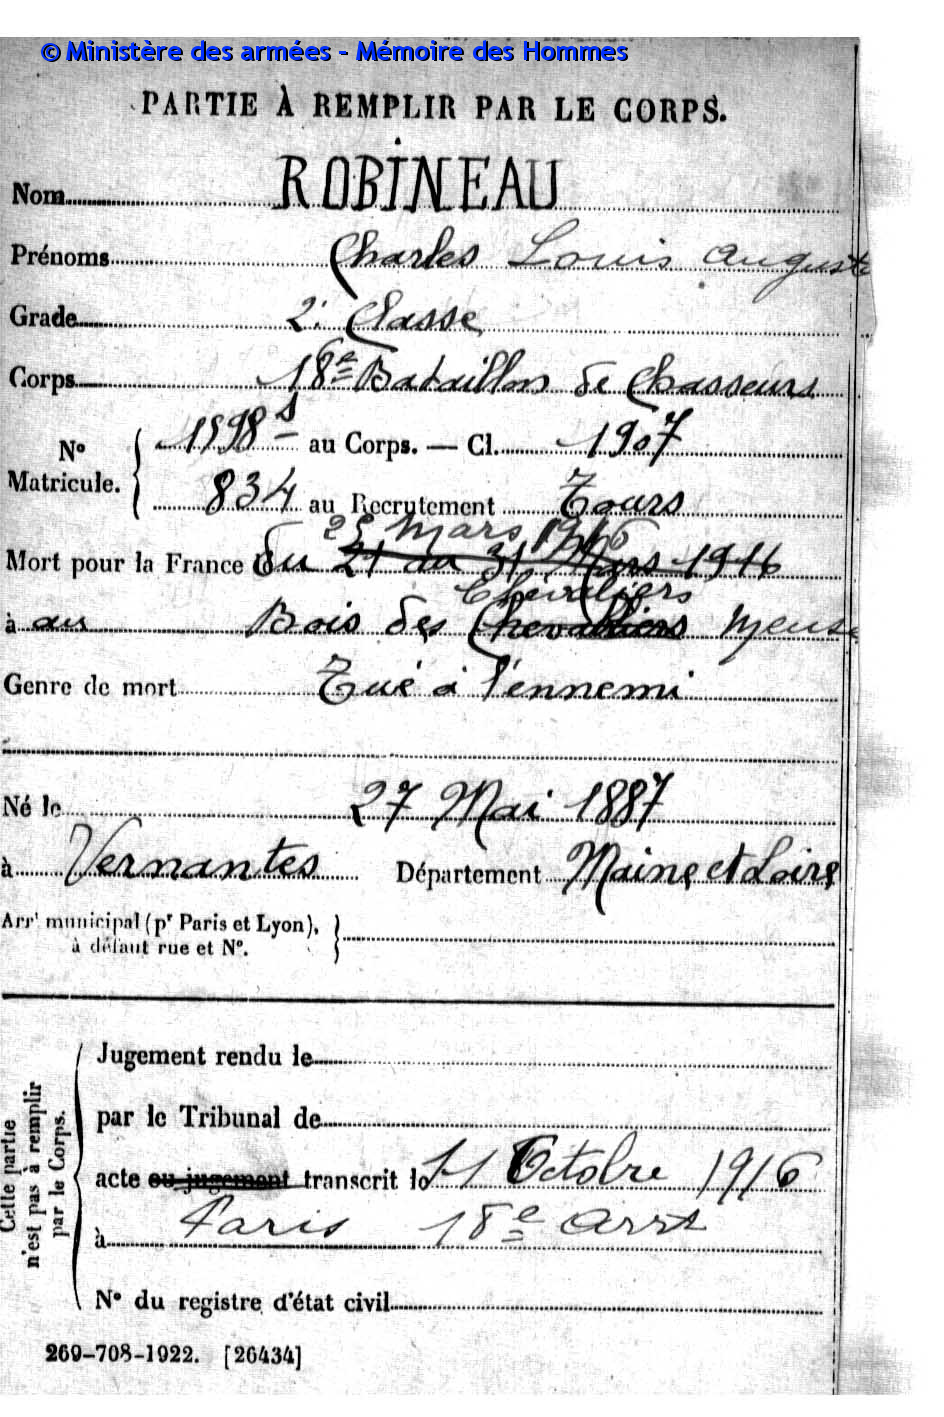 © Ministère des armées - Mémoire des Hommes
PARTIE À REMPLIR PAR LE CORPS.
Nom ROBINEAU
Prénoms Charles Louis Auguste
Grade 2e Classe
Corps 18e Bataillon de Chasseurs
No Matricule. 1598 s au Corps. — Cl. 1907
834 au Recrutement Tours
25 Mars 1916
Mort pour la France du 21 au 31 Mars 1916
Chevaliers
à au Bois des Chevalliers Meuse
Genre de mort Tué à l'ennemi
Né le 27 Mai 1887
à Vernantes Département Maine et Loire
Arrt municipal (pr Paris et Lyon),
à défaut rue et No.
Cette partie
n'est pas à remplir
par le Corps.
Jugement rendu le
par le Tribunal de
acte ou jugement transcrit le 11 Octobre 1916
à Paris 18e Arrt
No du registre d'état civil
269-708-1922. [26434]